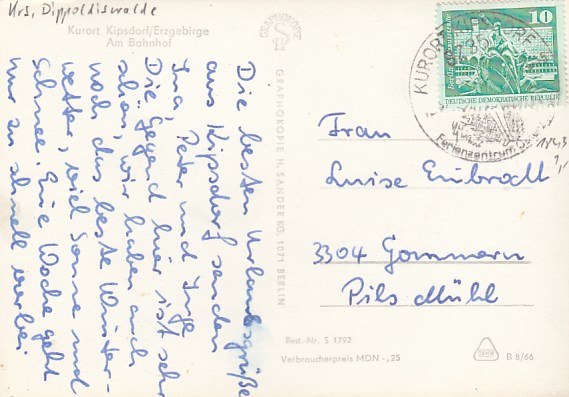 Krs. Dippoldiswalde
Kurort Kipsdorf/Erzgebirge
Am Bahnhof
Die besten Urlaubsgrüße
aus Kipsdorf senden
Ina, Peter und Inge
Die Gegend hier ist sehr
schön, wir haben auch
noch das beste Winter-
wetter, viel Sonne und
Schnee. Eine Woche geht
nur zu schnell vorbei
GRAFOKOPIE
GRAFOKOPIE H. SANDER KG, 1071 BERLIN
10
DEUTSCHE DEMOKRATISCHE REPUBLIK
KURORT
Ferienzentrum
Frau
Luise
3304 Gommern
Pils Mühl
Best.-Nr. S 1792
Verbraucherpreis MDN -,25
B 8/66